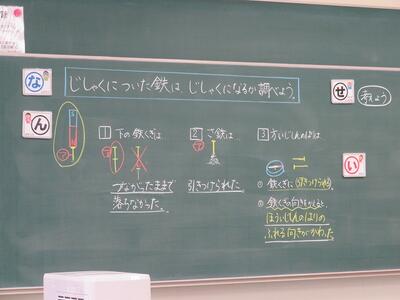 な
じしゃくについた鉄は じしゃくになるか調べよう。
せ
考えよう
ん
1 下の鉄くぎは
ア
つながったままで
落ちなかった。
2 さ鉄は
ア
引きつけられた
3 方いじしんのはりは
① 鉄くぎに引きつけられる
② 鉄くぎの向きをかえると、
ほういじしんのはりの
ふれる向きがかわった。
い